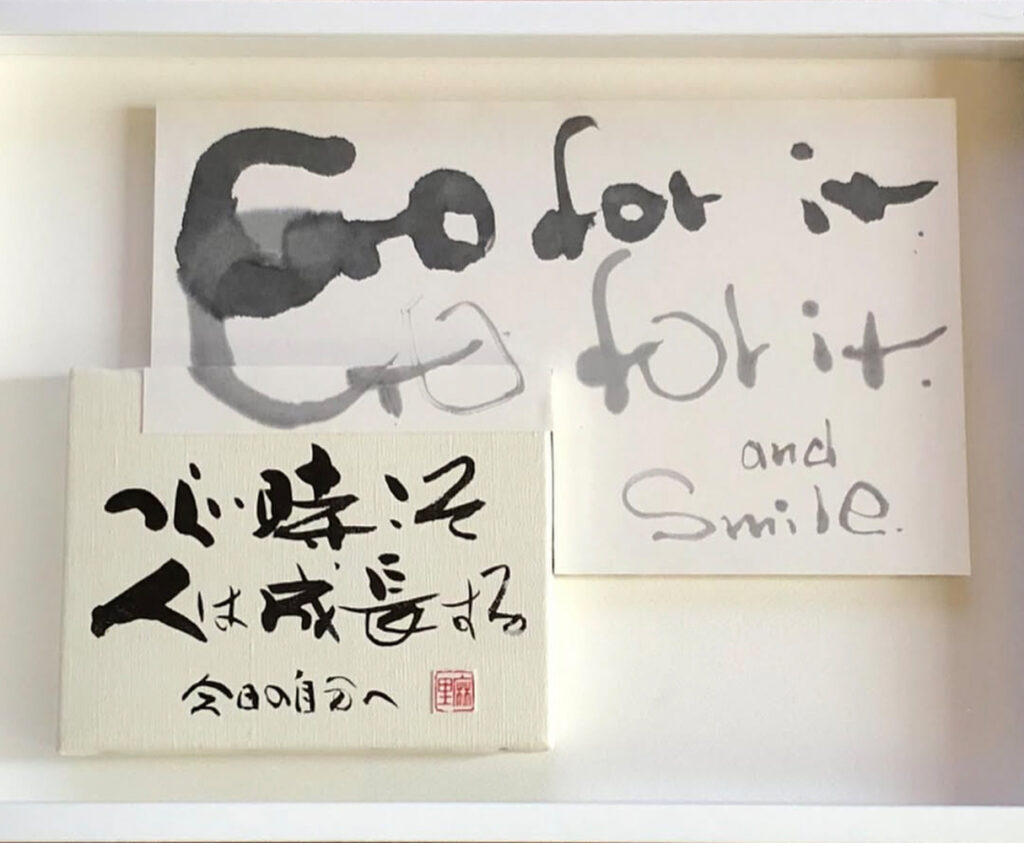 Go for it.
Go for it.
and
Smile.
つらい時こそ
人は成長する
今日の自分へ
麻里